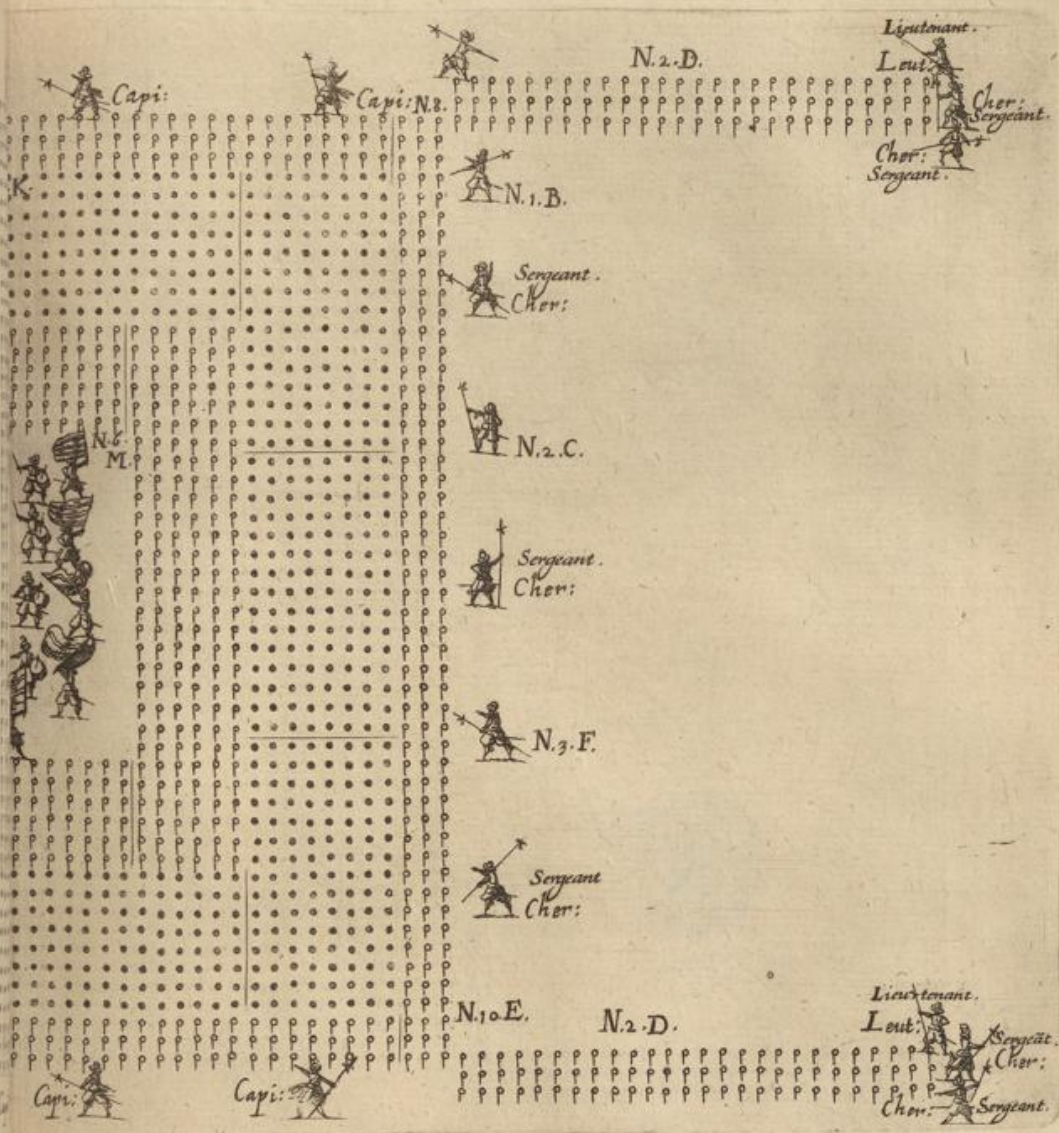 Lieutenant.
Leut:
Cher:
Sergeant.
Cher:
Sergeant.
N.2.D.
Capi:
Capi:
N.8.
K.
N.1.B.
Sergeant.
Cher:
N.2.C.
N.6.
M.
Sergeant.
Cher:
N.3.F.
Sergeant
Cher:
N.10.E.
N.2.D.
Lieutenant.
Leut:
Sergeāt.
Cher:
Cher:
Sergeant.
Capi:
Capi: